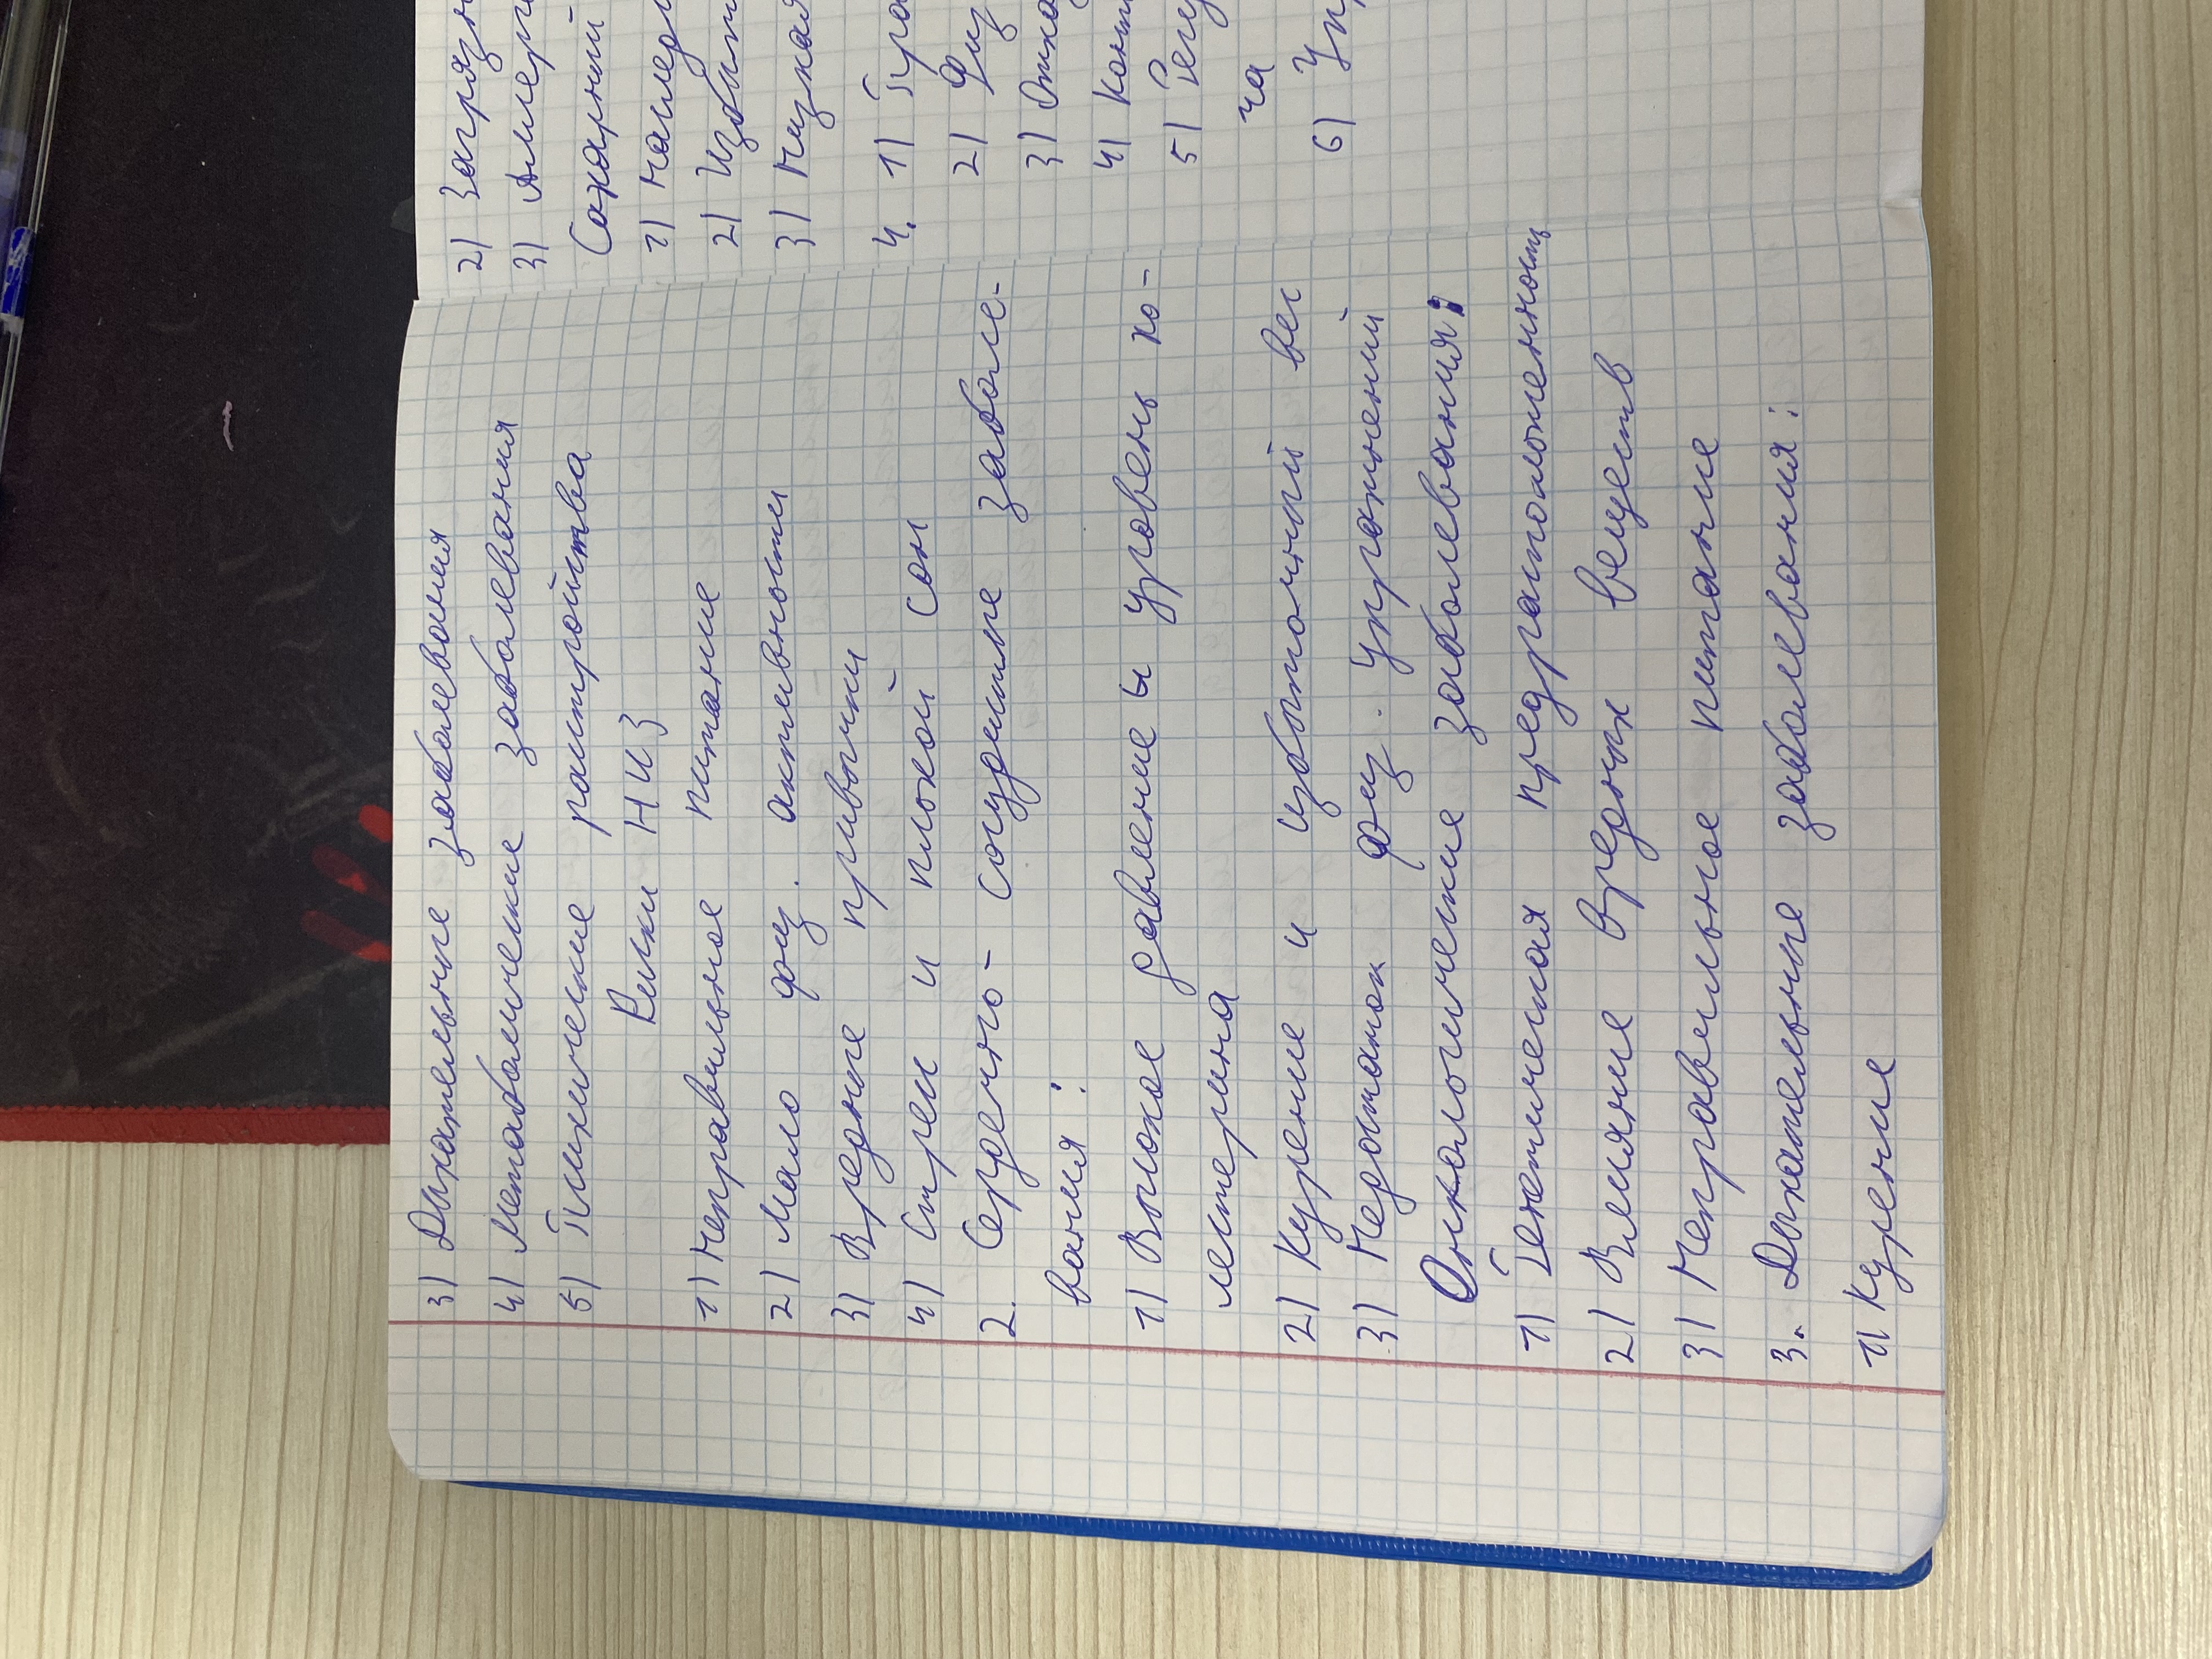 3) Дыхательные заболевания
4) Метаболические заболевания
5) Психические расстройства
Риски НИЗ
1) Неправильное питание
2) Мало физ. активности
3) Вредные привычки
4) Стресс и плохой сон
2. Сердечно - сосудистые заболе-
вания:
1) Высокое давление и уровень хо-
лестерина
2) Курение и избыточный вес
3) Недостаток физ. упражнений
Онкологические заболевания:
1) Генетическая предрасположенность
2) Влияние вредных веществ
3) Неправильное питание
3. Дыхательные заболевания:
1) Курение
2) Загрязн
3) Аллерг
Сахарный
1) Наслед
2) Избыт
3) Низкая
4. 1) Пра
2) Физ
3) Отка
4) Конт
5) Регу
ча
6) Уп